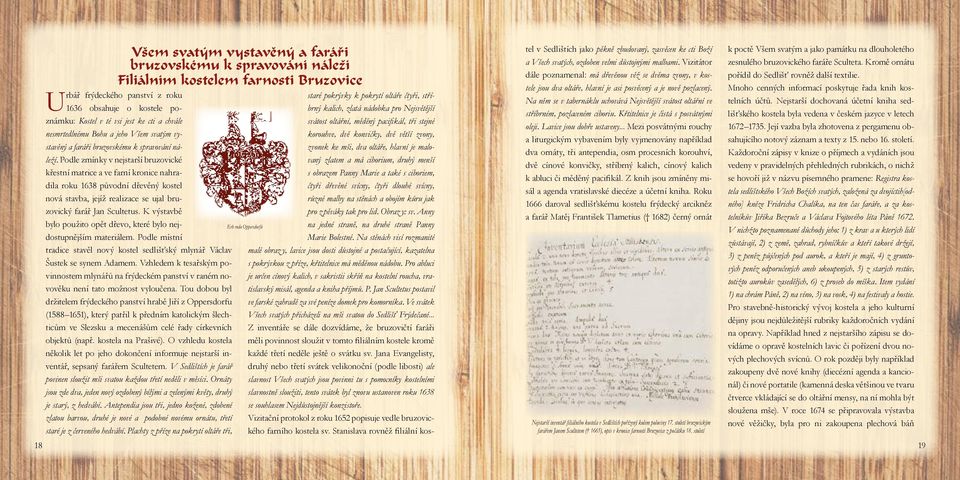 Všem svatým vystavěný a faráři
bruzovskému k spravování náleží
Filiálním kostelem farnosti Bruzovice
Urbář frýdeckého panství z roku
1636 obsahuje o kostele po-
známku: Kostel v té vsi jest ke cti a chvále
nesmrtedlnímu Bohu a jeho Všem svatým vy-
stavěný a faráři bruzovskému k spravování ná-
leží. Podle zmínky v nejstarší bruzovické
křestní matrice a ve farní kronice nahra-
dila roku 1638 původní dřevěný kostel
nová stavba, jejíž realizace se ujal bru-
zovický farář Jan Scultetus. K výstavbě
bylo použito opět dřevo, které bylo nej-
dostupnějším materiálem. Podle místní
tradice stavěl nový kostel sedlišťský mlynář Václav
Šustek se synem Adamem. Vzhledem k tesařským po-
vinnostem mlynářů na frýdeckém panství v raném no-
vověku není tato možnost vyloučena. Tou dobou byl
držitelem frýdeckého panství hrabě Jiří z Oppersdorfu
(1588–1651), který patřil k předním katolickým šlech-
ticům ve Slezsku a mecenášům celé řady církevních
objektů (např. kostela na Prašivé). O vzhledu kostela
několik let po jeho dokončení informuje nejstarší in-
ventář, sepsaný farářem Scultetem. V Sedlištích je farář
povinen sloužit mši svatou každou třetí neděli v měsíci. Ornáty
jsou zde dva, jeden nový ozdobený bílými a zelenými květy, druhý
je starý, z hedvábí. Antependia jsou tři, jedno kožené, zdobené
zlatou barvou, druhé je nové a podobné novému ornátu, třetí
staré je z červeného hedvábí. Plachty z příze na pokrytí oltáře tři,
Erb rodu Oppersdorfů
staré pokrývky k pokrytí oltáře čtyři, stří-
brný kalich, zlatá nádobka pro Nejsvětější
svátost oltářní, měděný pacifikál, tři stejné
korouhve, dvě konvičky, dvě větší zvony,
zvonek ke mši, dva oltáře, hlavní je malo-
vaný zlatem a má ciborium, druhý menší
s obrazem Panny Marie a také s ciboriem,
čtyři dřevěné svícny, čtyři dlouhé svícny,
různé malby na stěnách a obojím kůru jak
pro zpěváky tak pro lid. Obrazy: sv. Anny
na jedné straně, na druhé straně Panny
Marie Bolestné. Na stěnách visí rozmanité
malé obrazy, lavice jsou dosti důstojné a postačující, kazatelna
s pokrývkou z příze, křtitelnice má měděnou nádobu. Pro abluci
je určen cínový kalich, v sakristii skříň na kostelní roucha, vra-
tislavský misál, agenda a kniha příjmů. P. Jan Scultetus postavil
ve farské zahradě za své peníze domek pro komorníka. Ve svátek
Všech svatých přicházejí na mši svatou do Sedlišť Frýdečané...
Z inventáře se dále dozvídáme, že bruzovičtí faráři
měli povinnost sloužit v tomto filiálním kostele kromě
každé třetí neděle ještě o svátku sv. Jana Evangelisty,
druhý nebo třetí svátek velikonoční (podle libosti) ale
slavnost Všech svatých jsou povinni tu s pomocníky kostelními
slavnostně sloužiti, tento svátek byl znovu ustanoven roku 1638
se souhlasem Nejdůstojnější konzistoře.
Vizitační protokol z roku 1652 popisuje vedle bruzovic-
kého farního kostela sv. Stanislava rovněž filiální kos-
18
tel v Sedlištích jako pěkně zbudovaný, zasvěcen ke cti Boží
a Všech svatých, ozdoben velmi důstojnými malbami. Vizitátor
dále poznamenal: má dřevěnou věž se dvěma zvony, v kos-
tele jsou dva oltáře, hlavní je asi posvěcený a je nově pozlacený.
Na něm se v tabernáklu uchovává Nejsvětější svátost oltářní ve
stříbrném, pozlaceném ciboriu. Křtitelnice je čistá s posvátnými
oleji. Lavice jsou dobře ustaveny... Mezi posvátnými rouchy
a liturgickým vybavením byly vyjmenovány například
dva ornáty, tři antependia, osm procesních korouhví,
dvě cínové konvičky, stříbrný kalich, cínový kalich
k abluci či měděný pacifikál. Z knih jsou zmíněny mi-
sál a agenda vratislavské diecéze a účetní kniha. Roku
1666 daroval sedlišťskému kostelu frýdecký arcikněz
a farář Matěj František Tlametius († 1682) černý ornát
Nejstarší inventář filiálního kostela v Sedlištích pořízený kolem poloviny 17. století bruzovickým
farářem Janem Scultetem († 1663), opis v kronice farnosti Bruzovice z počátku 18. století
k poctě Všem svatým a jako památku na dlouholetého
zesnulého bruzovického faráře Sculteta. Kromě ornátu
pořídil do Sedlišť rovněž další textilie.
Mnoho cenných informací poskytuje řada knih kos-
telních účtů. Nejstarší dochovaná účetní kniha sed-
lišťského kostela byla vedena v českém jazyce v letech
1672–1735. Její vazba byla zhotovena z pergamenu ob-
sahujícího notový záznam a texty z 15. nebo 16. století.
Každoroční zápisy v knize o příjmech a vydáních jsou
vedeny v pravidelných přehledných rubrikách, o nichž
se hovoří již v názvu písemného pramene: Registra kos-
tela sedlišťského Všech Božích svatých, založená za dvojctihod(né-
ného) kněze Fridricha Chalika, na ten čas faráře, a za kos-
telníkův Jiříka Bezruče a Václava Fojtového léta Páně 1672.
V nichžto poznamenané důchody jeho: 1) z krav a u kterých lidí
zůstávají. 2) z země, zahrad, rybníčkův a kteří takové drží,
3) z peněz půjčených pod aurok, a kteří je mají, 4) z grunto-
vých peněz odporučených aneb ukoupených, 5) z starých restův,
totižto aurokův zasedělých, 6) z proseb do měška. Item vydání
1) na chrám Páně, 2) na víno, 3) na vosk, 4) na festivaly a hostie.
Pro stavebně-historický vývoj kostela a jeho kulturní
dějiny jsou nejdůležitější rubriky každoročních vydání
na opravy. Například hned z nejstaršího zápisu se do-
vídáme o opravě kostelních lavic či pořízení dvou no-
vých plechových svícnů. O rok později byly například
zakoupeny dvě nové knihy (diecézní agenda a kancio-
nál) či nové portatile (kamenná deska většinou ve tvaru
čtverce vkládající se do oltární mensy, na ní mohla být
sloužena mše). V roce 1674 se připravovala výstavba
nové věžičky, byla pro ni zakoupena plechová báň
19